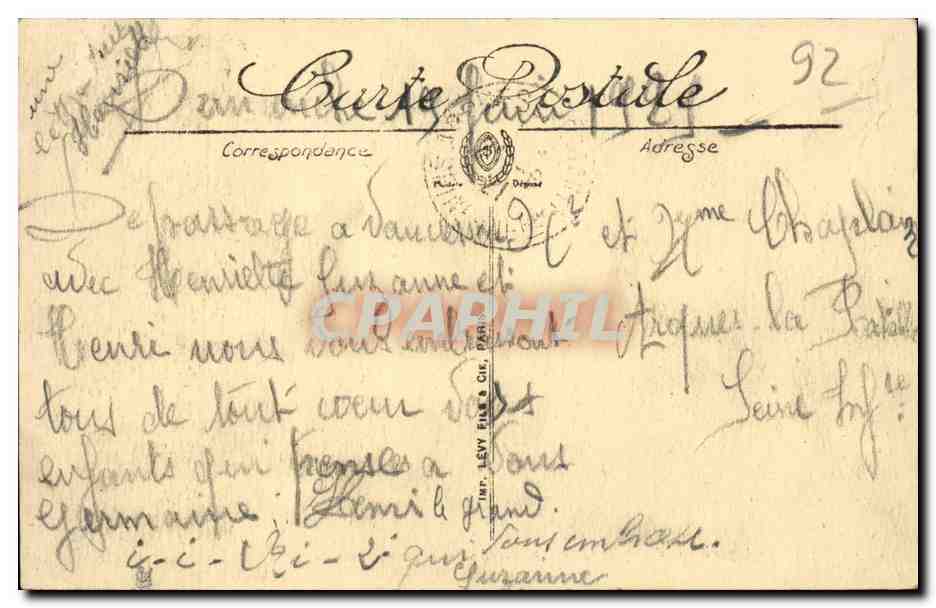 92
Carte Postale
Dimanche 1929
Correspondance
Adresse
Modèle Déposé
De passage a Vaucresson
avec Henriette Suzanne et
Henri nous vous embrassons
tous de tout coeur Vos
enfants qui penses a Vous
Germaine, Henri le grand.
qui vous embrasse.
Suzanne
Mr et Mme Chaplain
Arques-la Bataille
Seine Infre
IMP. LÉVY FILS & CIE, PARIS
CPARPHIL